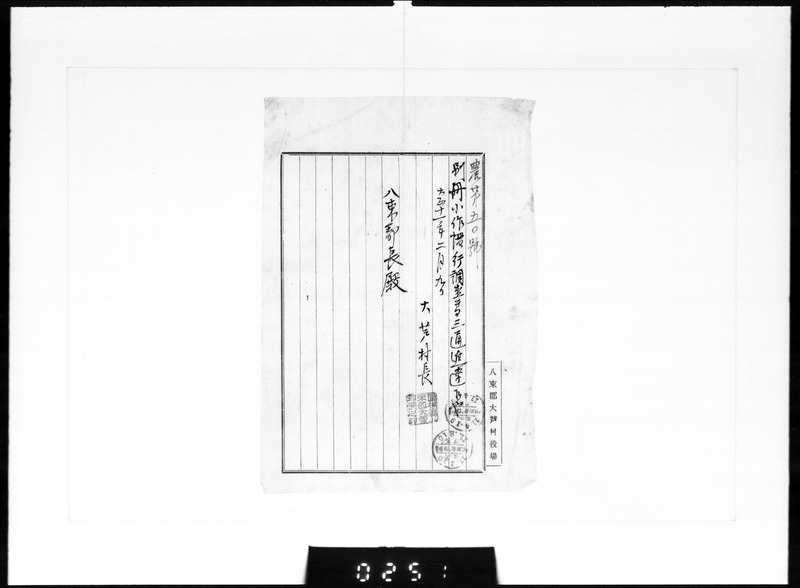 農第五〇號
別冊小作慣行調査書三通進達
大正十一年二月九日
大芦村長
八束郡長殿
八束郡大芦村役場
0251